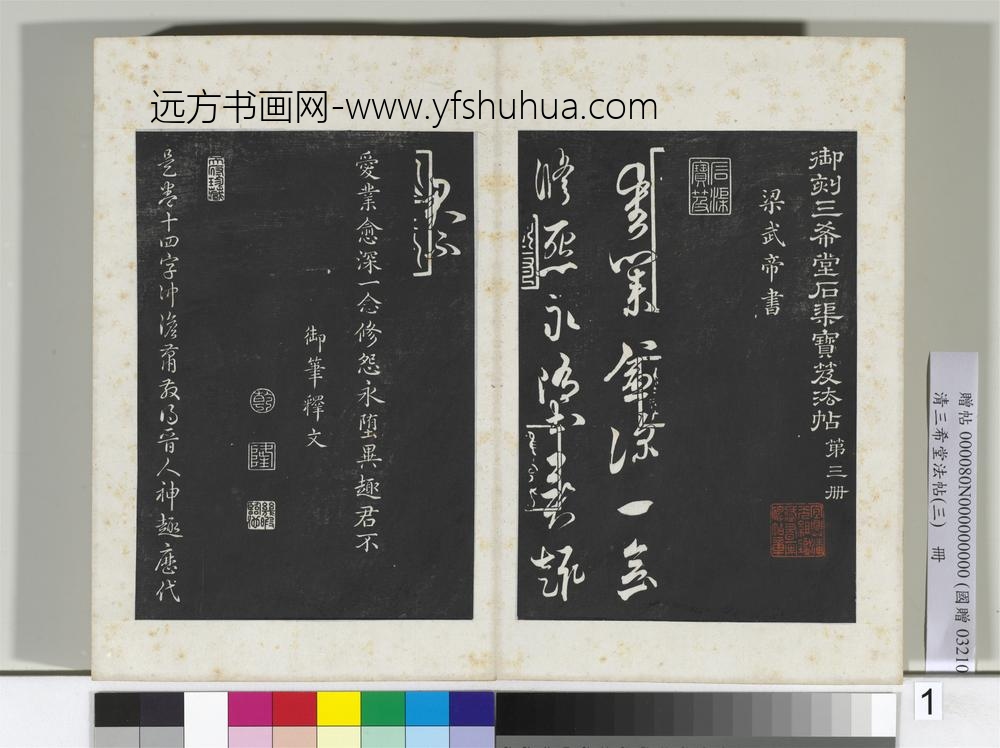 远方书画网-www.yfshuhua.com
御刻三希堂石渠寶笈法帖 第三冊
梁武帝書
石渠
寶笈
愛業愈深一念
修怨永墮異趣
君不
愛業愈深一念修怨永墮異趣君不
御筆釋文
乾
隆
是卷十四字冲澹蕭散得晉人神趣歷代
贈帖 000080N000000000 (國贈 03210
清三希堂法帖(三) 冊
1